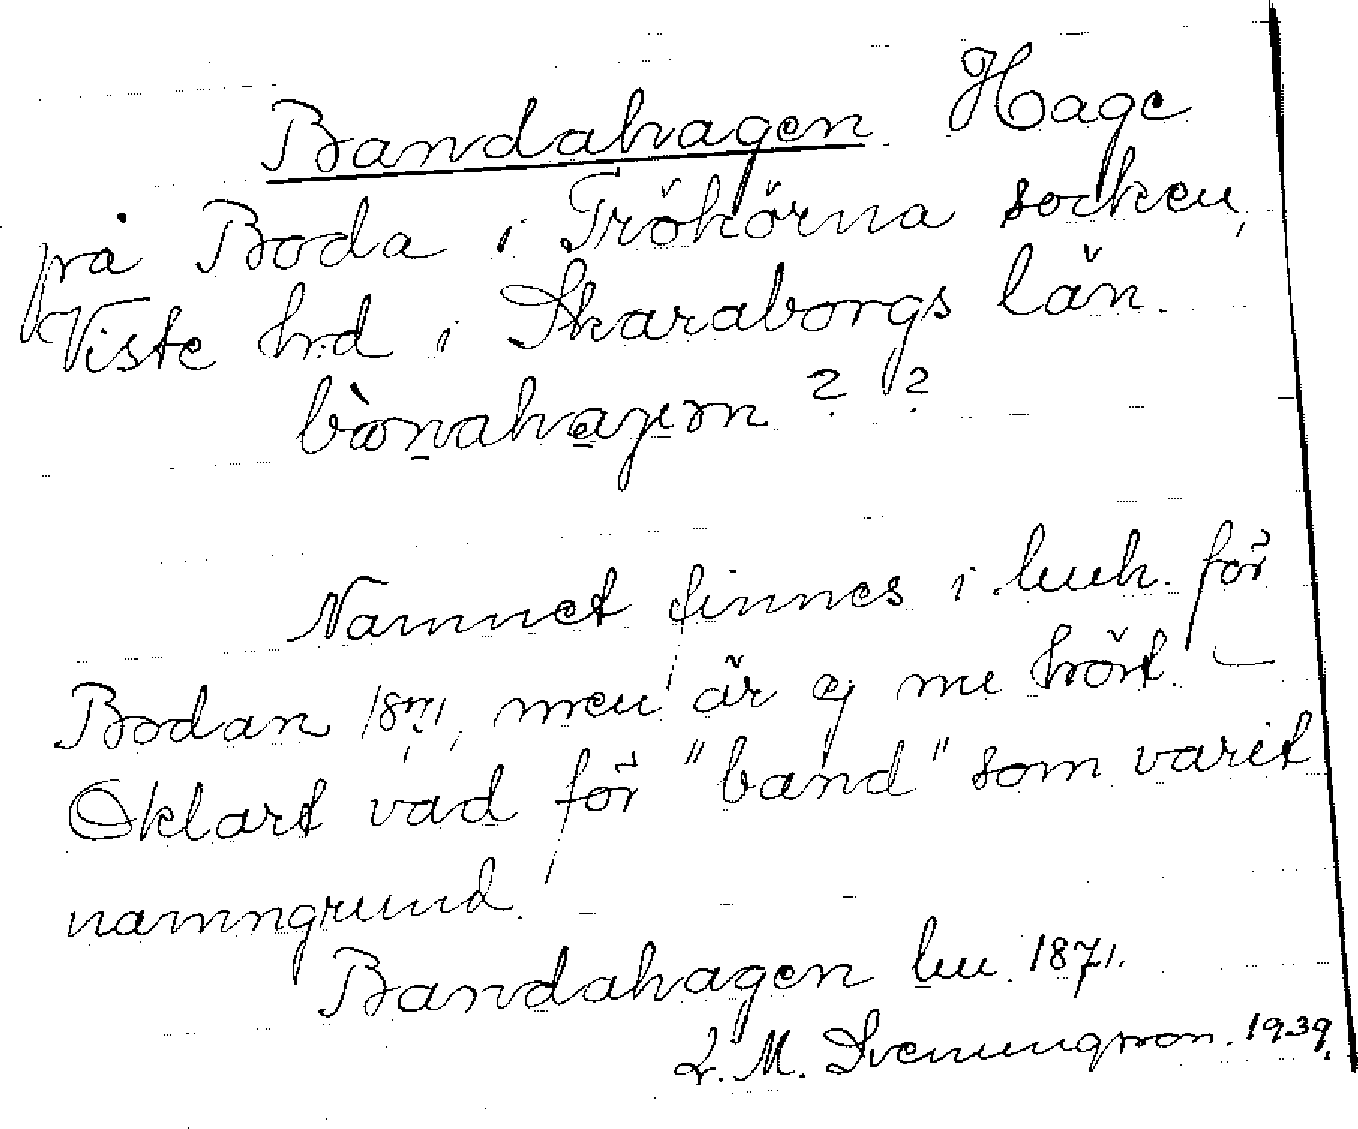 Bandahagen Hage
på Boda i Trökörna socken,
Viste hrd i Skaraborgs län.
? ?
Namnet finnes i luh. för
Bodan 1871, men är ej nu hört. —
Oklart vad för "band" som varit
namngrund.
Bandahagen lu 1871.
L. M. Svenungsson. 1939.